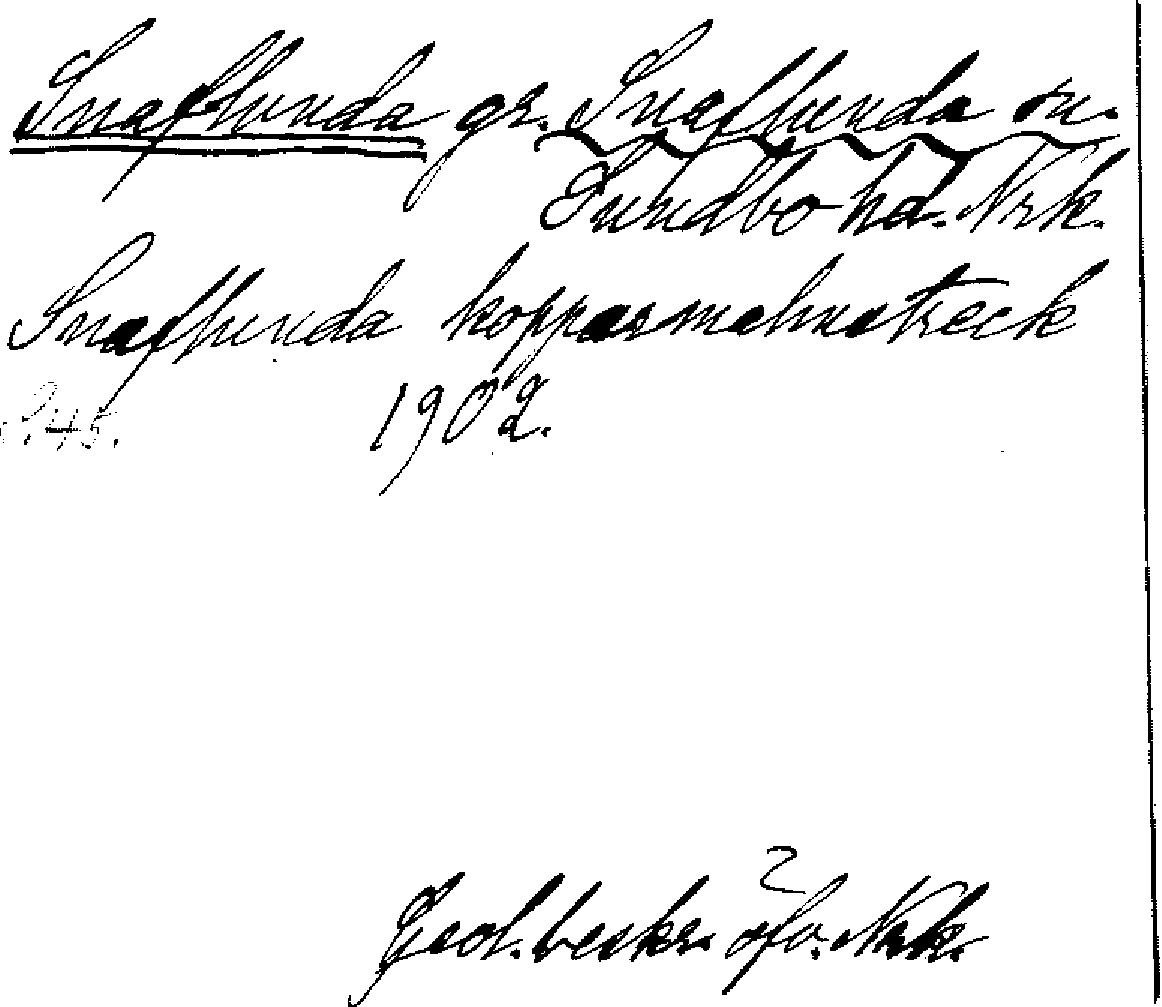 Snaflunda gr. Snaflunda sn.
Sundbo hd. Nrk.
Snaflunda kopparmalmstreck
S. 45. 1902.
Geol. beskr. öfv. Nrk.